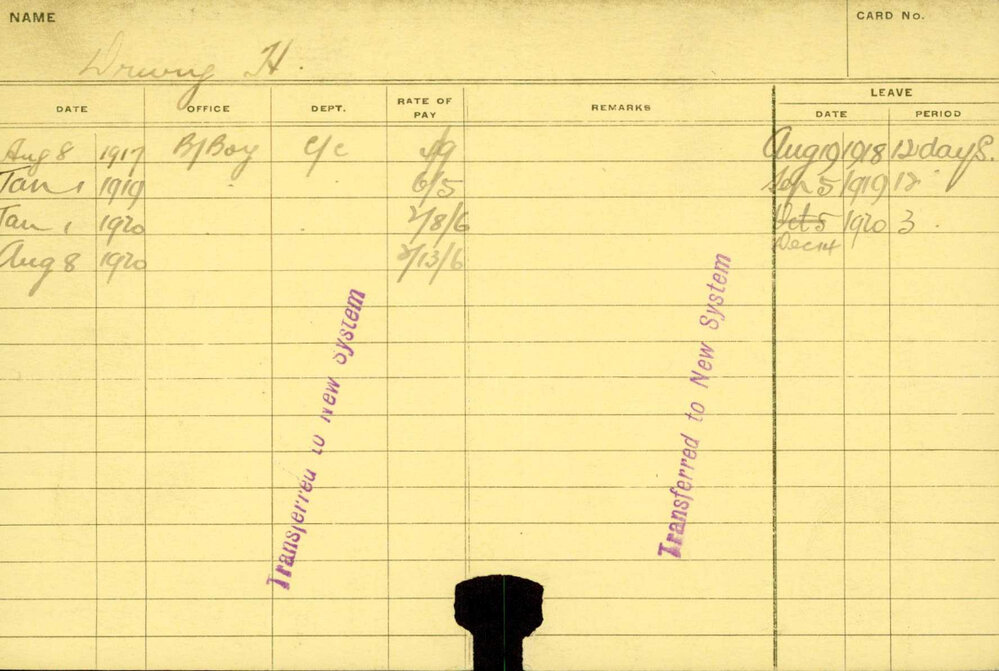 NAME
CARD No.
H.
DATE OFFICE DEPT. RATE OF PAY REMARKS LEAVE DATE PERIOD
Aug 8 1917 B/Boy C/c Aug 19 1918 12 days.
Jan 1 1919 6/5 Sep 5 1919 12
Jan 1 1920 /8/6 Oct 5 1920 3
Dec 14
Aug 8 1920 /13/6
Transferred to New System
Transferred to New System